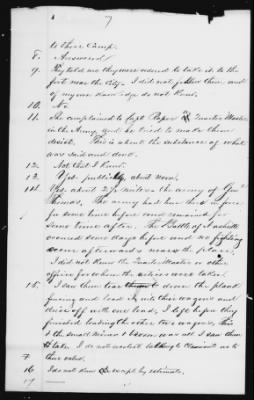 7
to their Camp.
8. Answered
9. They told me they were ordered to take it to the
fort near the City. I did not follow them and
of my own knowledge do not know.
10. No
11. She complained to Capt Quarter Master
in the Army, and he tried to make them
desist. This is about the substance of what
was said and done.
12. Not that I know.
13. Yes. publicly about noon.
14. Yes about 2 miles the army of Genl
Thomas. The army had been there
for some time before and remained for
some time after. The Battle of Nashville
occurred some days before and no fighting
soon afterwards near the place.
I did not know the Quarter Master or other
officer for whom the articles were taken.
15. I saw them tear down the plank
fencing and load it into their wagons and
drive off with one load, I left before they
finished loading the other two wagons, this
was all I saw them
take. I do not as to
their value.
16. I do not know except by estimate.
17